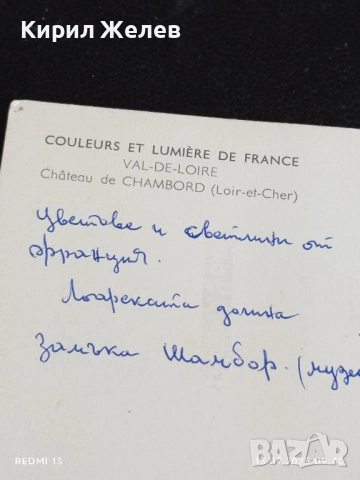 Кирил Желев
COULEURS ET LUMIÈRE DE FRANCE
VAL-DE-LOIRE
Château de CHAMBORD (Loir-et-Cher)
Цветове и светлини от
Франция.
Лоарската долина
Замъка Шамбор. (музе
REDMI 13
BAZAR